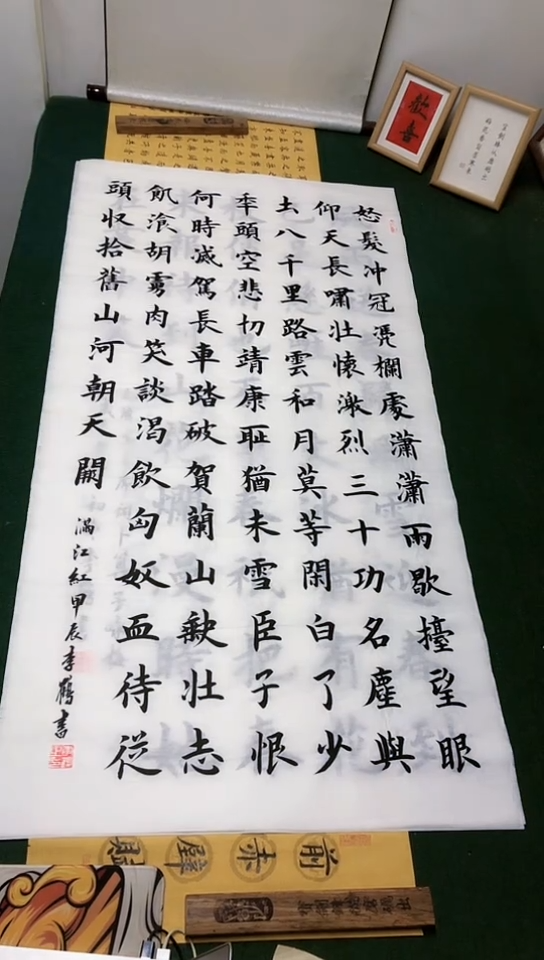 怒髮冲冠凴欄處瀟瀟雨歇擡望眼
仰天長嘯壯懷激烈三十功名塵與
土八千里路雲和月莫等閑白了少
秊頭空悲切靖康耻猶未雪臣子恨
何時滅駕長車踏破賀蘭山缺壯志
飢飡胡虜肉笑談渴飲匈奴血待從
頭收拾舊山河朝天闕
滿江紅甲辰李鶴書
歡喜
前赤壁賦